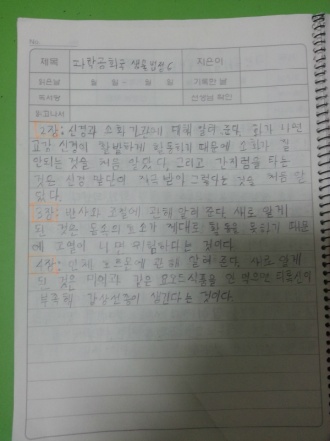 제목 과학공화국 생물법정 6 지은이
읽은날 월 일 ~ 월 일 기록한 날
독서량 선생님 확인
읽고나서
2장: 신경과 소화기관에 대해 알려 준다. 화가 나면
교감 신경이 활발하게 활동하기 때문에 소화가 잘
안되는 것을 처음 알았다. 그리고 간지럼을 타는
것은 신경 말단이 자극받아 그렇다는 것을 처음 알
았다.
3장: 반사와 호흡에 관해 알려준다. 새로 알게
된 것은 몸속의 효소가 제대로 활동을 못하기 때문
에 고열이 나면 위험하다는 것이다.
4장: 인체 호르몬에 관해 알려준다. 새로 알게
된 것은 미역과 같은 요오드식품을 안 먹으면 티록신이
부족해 갑상선종이 생긴다는 것이다.